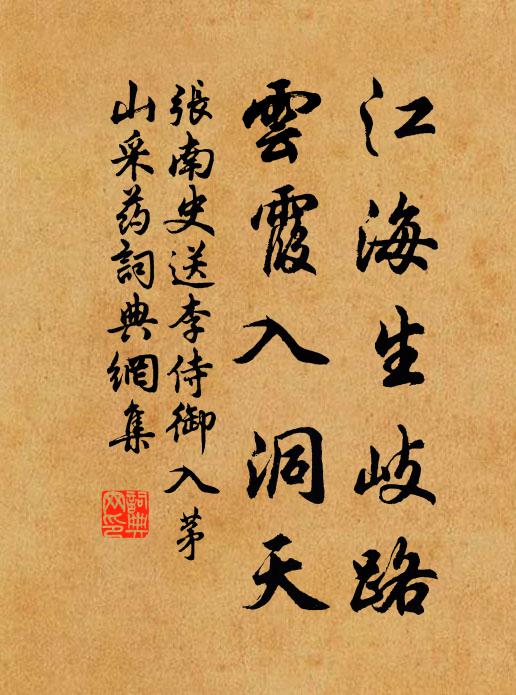 江海生岐路
雲霞入洞天
張南史送李侍御入茅
山采药詞典網集
詞典
网印